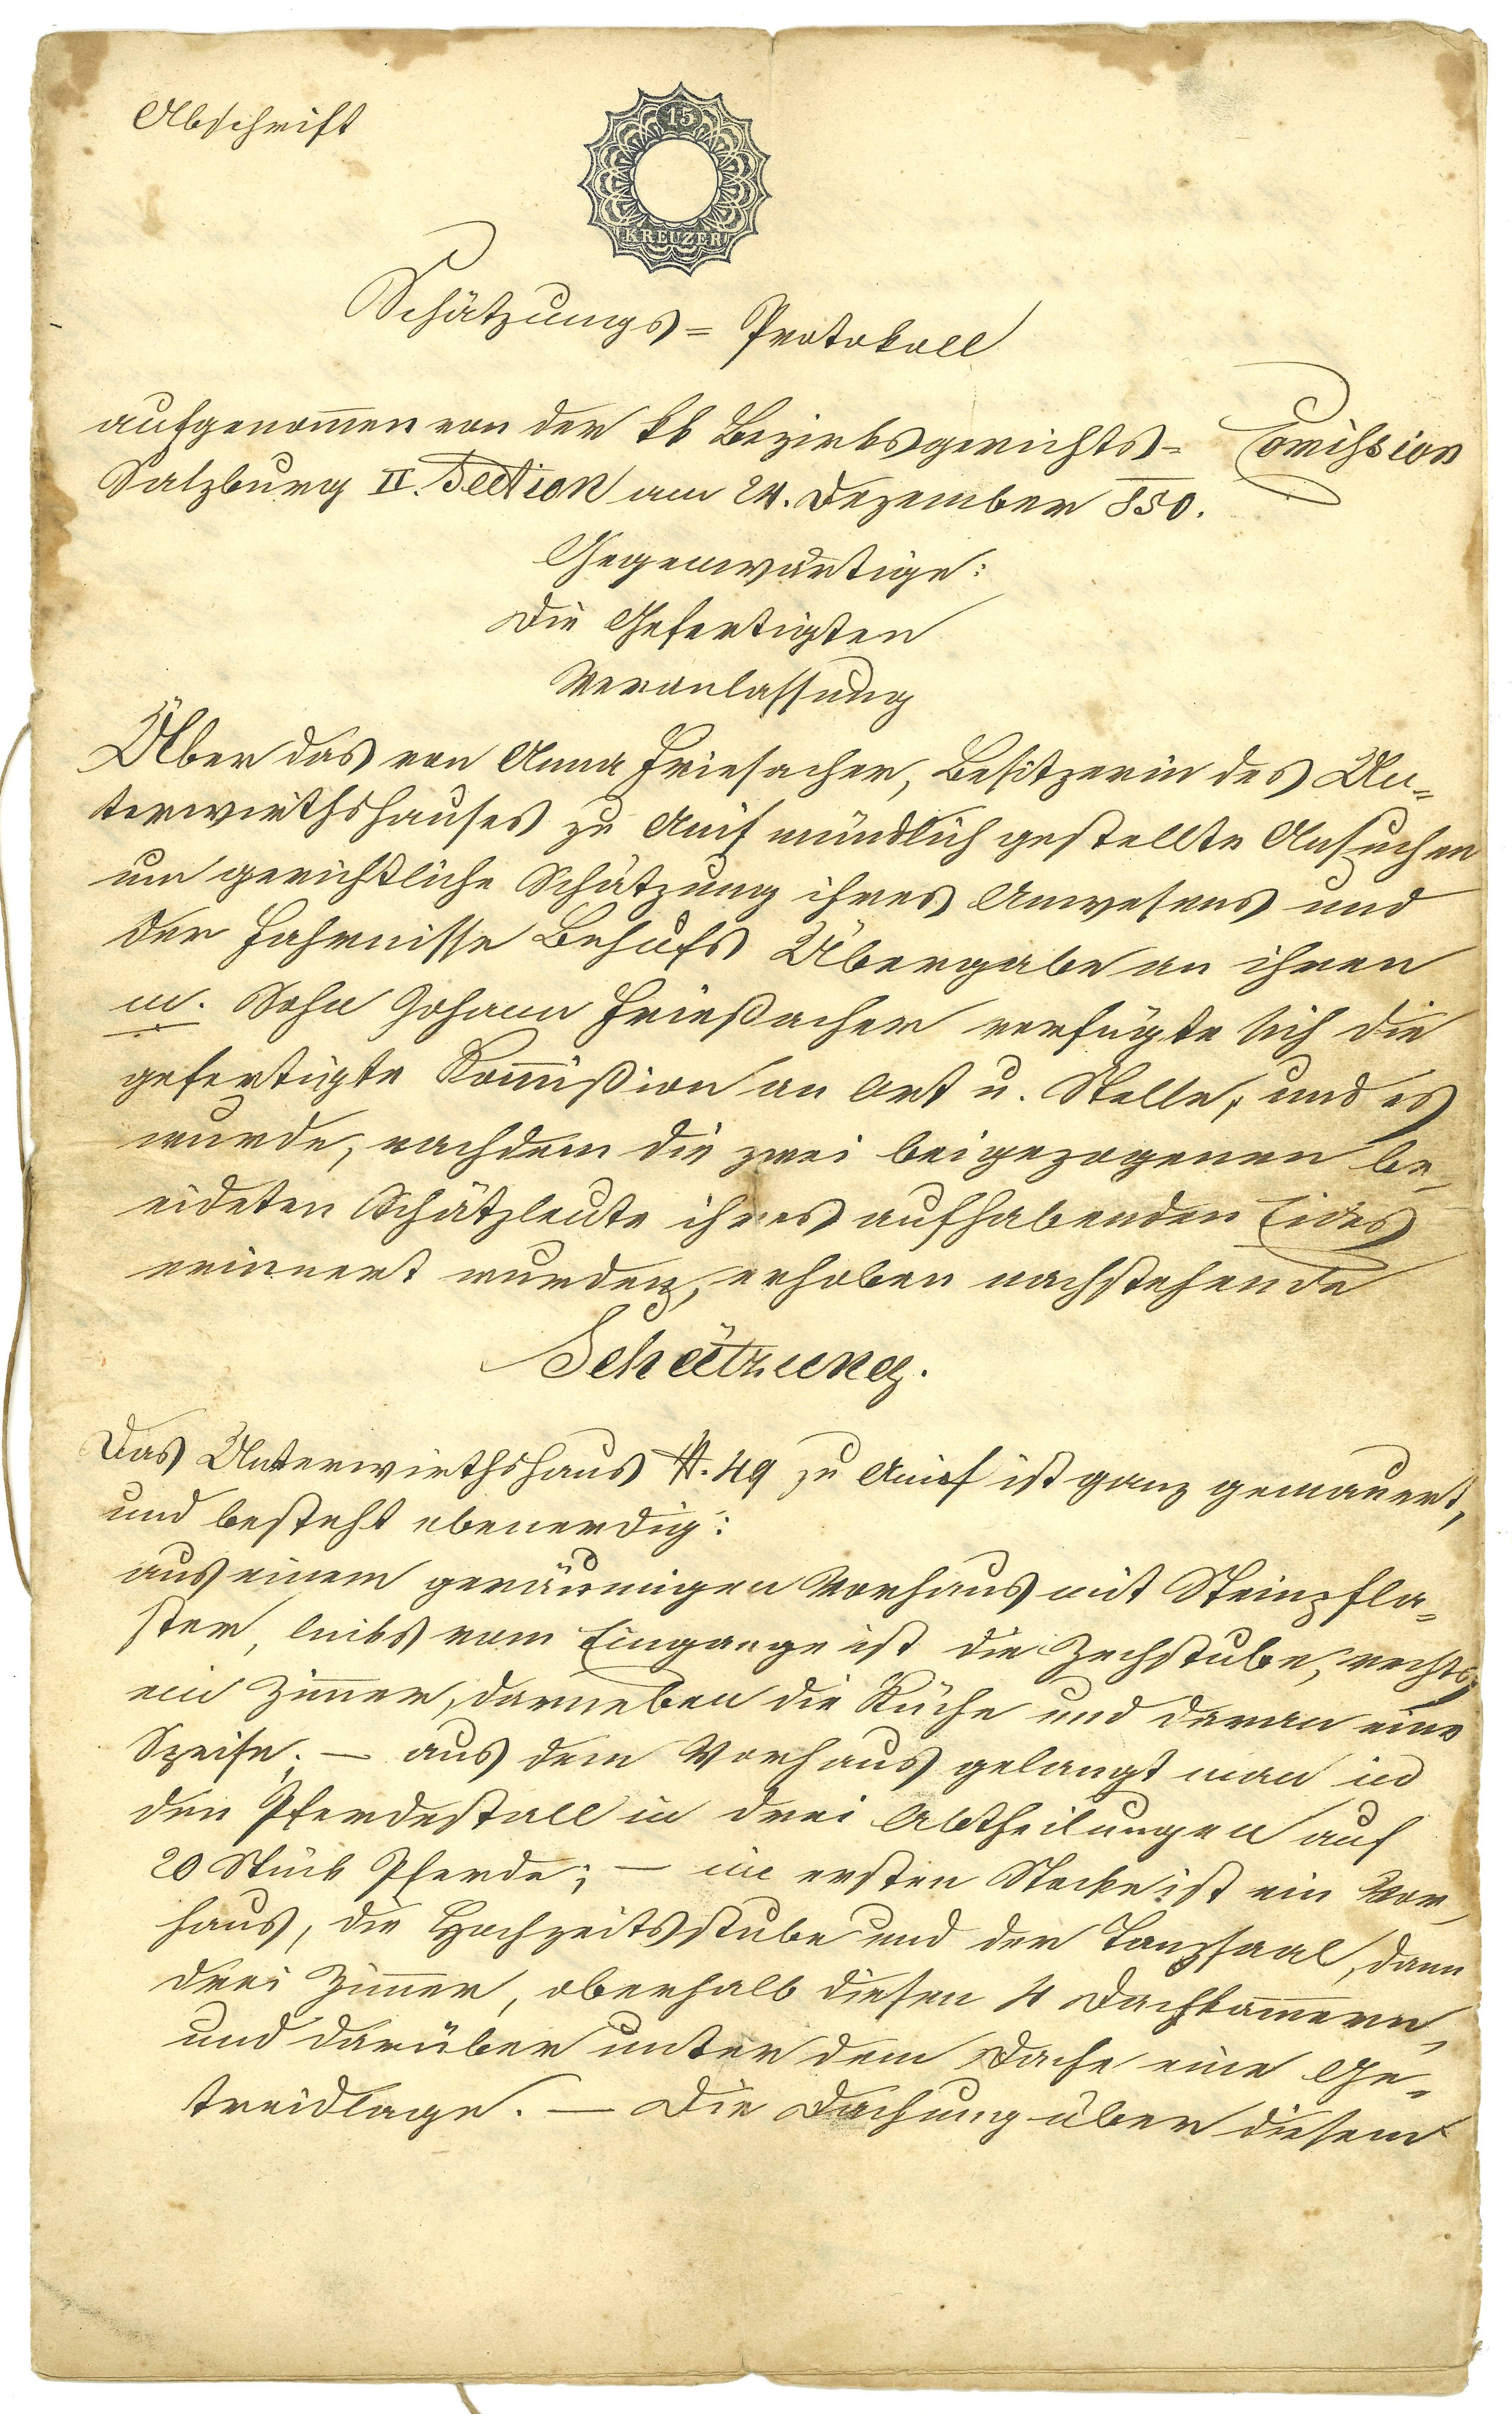 Abschrift
15
KREUZER
Schätzungs= Protokoll
aufgenom̅en von der kk Bezirksgerichts= Com̅ißion
Salzburg II. Section am 24. Dezember 850.
Gegenwärtige:
Die Gefertigten
Veranlassung
Über das von Anna Friesacher, Besitzerin des Un=
terwirthshauses zu Anif mündlich gestellte Ansuchen
um gerichtliche Schätzung ihres Anwesens und
der Fahrnisse Behufs Übergabe an ihren
m. Sohn Johann Frießacher verfügte sich die
gefertigte Kom̅ißion an Ort u. Stelle, und es
wurde, nachdem die zwei beigezogenen be=
eideten Schätzleute ihres aufhabenden Eides
erinnert wurden, erhoben nachstehende
Schätzung.
Das Unterwirthshaus N. 49 zu Anif ist ganz gemauert,
und besteht ebenerdig:
aus einem geräumigen Vorhaus mit Steinpfla=
ster, links vom Eingange ist die Zechstube, rechts
ein Zim̅er, darneben die Küche und daran eine
Speise. — aus dem Vorhaus gelangt man in
den Pferdestall in drei Abtheilungen auf
20 Stück Pferde; — im ersten Stocke ist ein Vor=
haus, die Hochzeitsstube und der Tanzsaal, dann
drei Zim̅er, oberhalb diesen 4 Dachkam̅ern,
und darüber unter dem Dache eine Ge=
treidlage. — Die Dachung über diesem